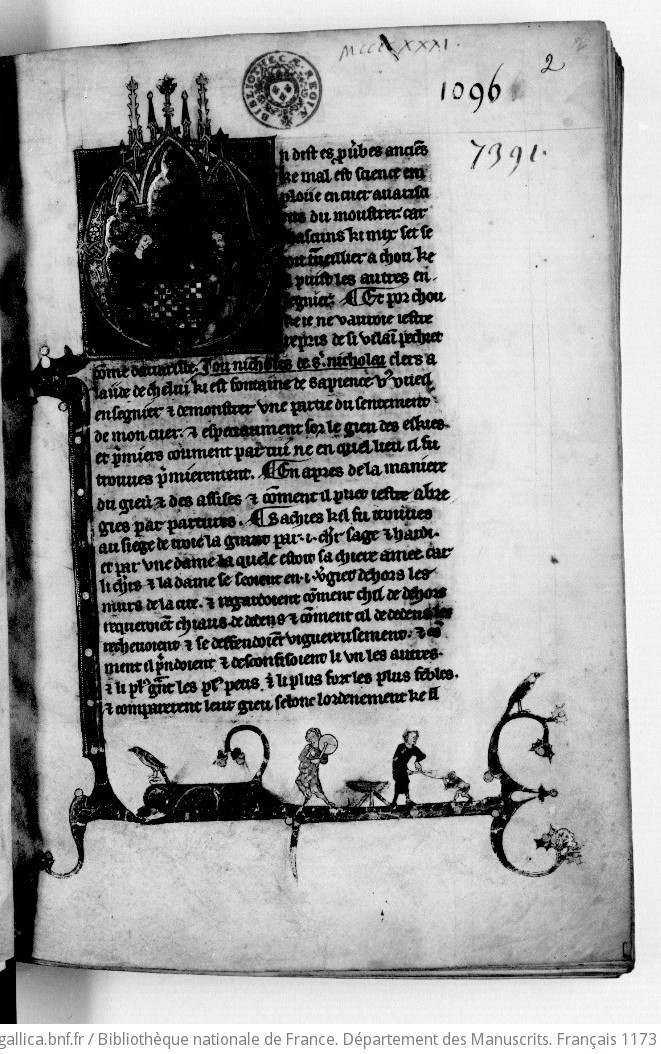 MCCCLXXXI.
2
BIBLIOTHECÆ REGIÆ
1096
7391.
n dist es pũbes anciẽs
ke mal est science em
ploiie en cuer auarisci
du moustrer car
cascuns ki mix set se
doit traueillier a chou ke
il puist les autres en
segnier. Et por chou
ke ie ne vauroie iestre
repris de si vilaĩ pechiet
cõme dauarisse. Iou nicholes de sʳ. nicholai clers a
laiide de chelui ki est fontaine de sapience vꝰ vueq
ensegnier ⁊ demonstrer vne partie du sentement
de mon cuer. ⁊ especiaument sor le gieu des eskies.
et pʳmiers cõument par cui ne en quel lieu il fu
trouues pʳmierement. En apres de la maniere
du gieu ⁊ des assises ⁊ cõment il puet iestre abre
gies par partures. Sachies kil fu trouues
au siege de troie la grant par .i. chʳr sage ⁊ hardi.
et par vne dame la quele estoit sa chiere amee. car
li chʳrs ⁊ la dame se seoient en .i. vʳgiet dehors les
murs de la cite. ⁊ regardoient cõment chil de dehors
requeroiẽt chiaus de dedens ⁊ cõment cil de dedens les
rechevoient ⁊ se deffendoiẽt viguereusement. ⁊ cõ
ment il pʳndoient ⁊ desconfisoient li vn les autres.
⁊ li plꝰ gʳnt les plꝰ petis. ⁊ li plus fort les plus febles.
⁊ comparerent leur gieu selonc lordenement ke il
gallica.bnf.fr / Bibliothèque nationale de France. Département des Manuscrits. Français 1173